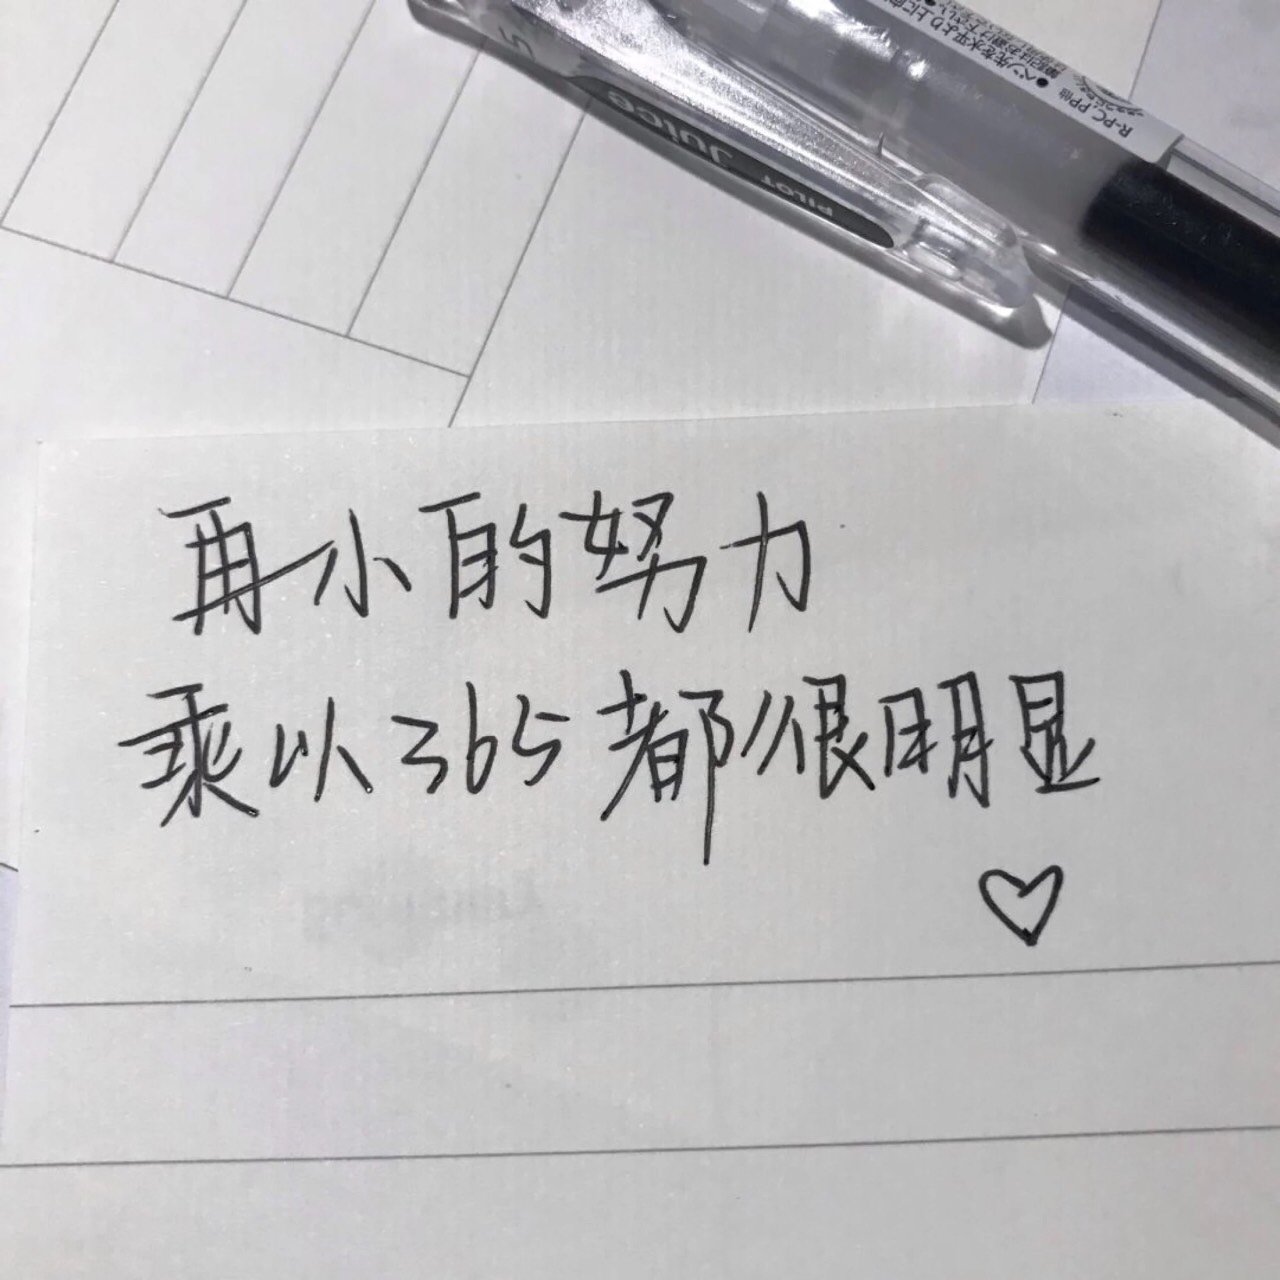 5
Juice
PILOT
R-PC, PP他
再小的努力
乘以365都很明显